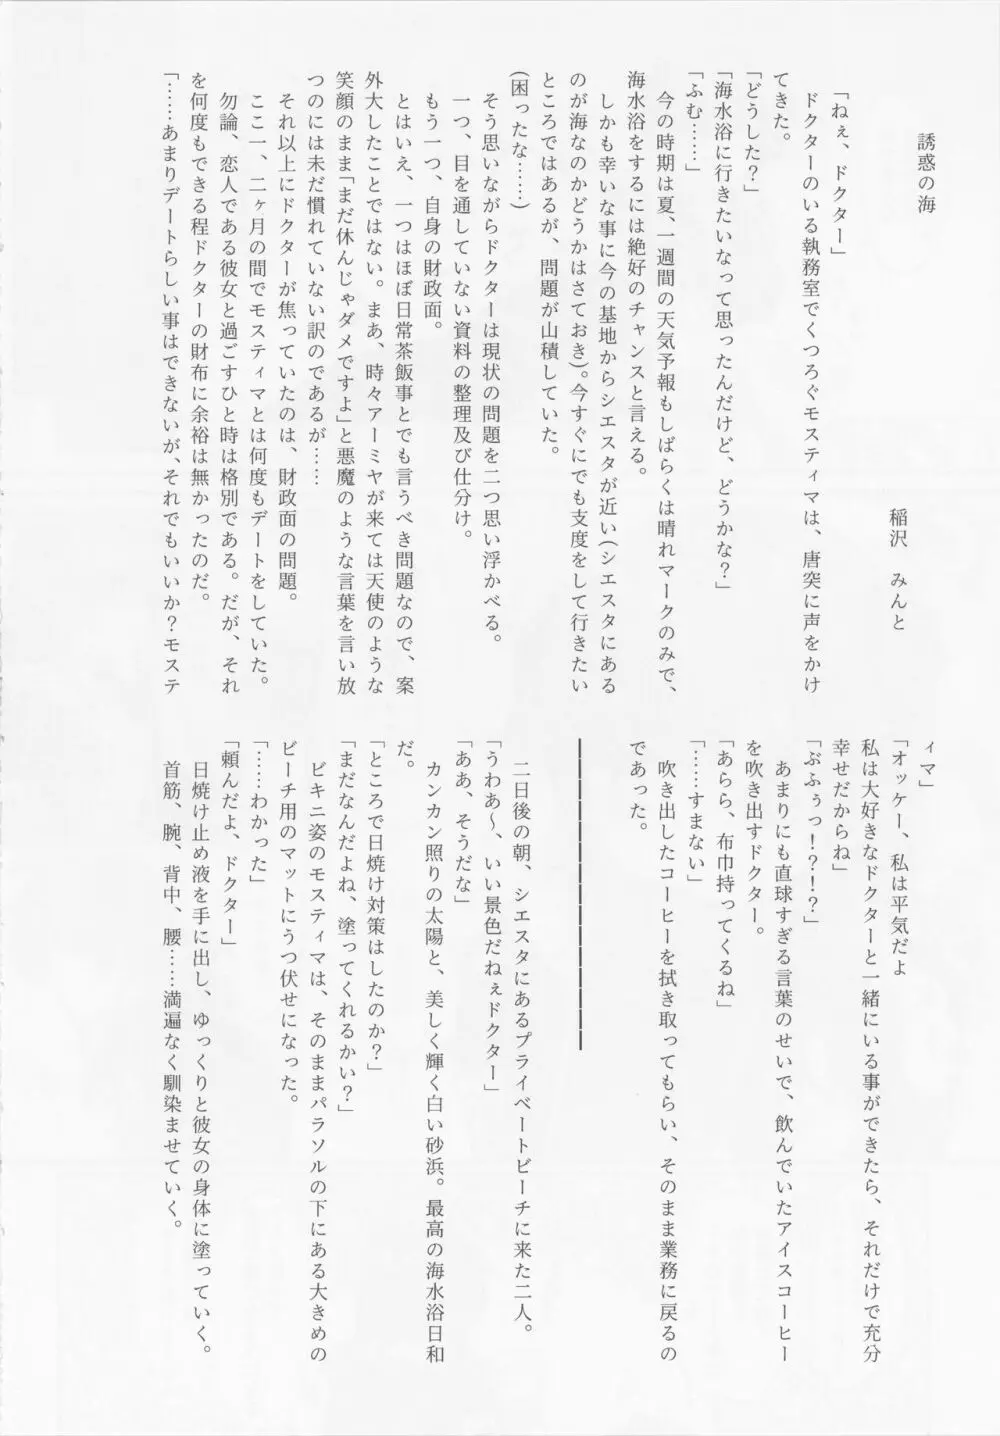 誘惑の海
稲沢　みんと
「ねぇ、ドクター」
ドクターのいる執務室でくつろぐモスティマは、唐突に声をかけ
てきた。
「どうした？」
「海水浴に行きたいなって思ったんだけど、どうかな？」
「ふむ……」
今の時期は夏、一週間の天気予報もしばらくは晴れマークのみで、
海水浴をするには絶好のチャンスと言える。
しかも幸いな事に今の基地からシエスタが近い(シエスタにある
のが海なのかどうかはさておき)。今すぐにでも支度をして行きたい
ところではあるが、問題が山積していた。
(困ったな……)
そう思いながらドクターは現状の問題を二つ思い浮かべる。
一つ、目を通していない資料の整理及び仕分け。
もう一つ、自身の財政面。
とはいえ、一つはほぼ日常茶飯事とでも言うべき問題なので、案
外大したことではない。まあ、時々アーミヤが来ては天使のような
笑顔のまま「まだ休んじゃダメですよ」と悪魔のような言葉を言い放
つのには未だ慣れていない訳のであるが……
それ以上にドクターが焦っていたのは、財政面の問題。
ここ一、二ヶ月の間でモスティマとは何度もデートをしていた。
勿論、恋人である彼女と過ごすひと時は格別である。だが、それ
を何度もできる程ドクターの財布に余裕は無かったのだ。
「……あまりデートらしい事はできないが、それでもいいか？モステ
ィマ」
「オッケー、私は平気だよ
私は大好きなドクターと一緒にいる事ができたら、それだけで充分
幸せだからね」
「ぶふぅっ！？！？」
あまりにも直球すぎる言葉のせいで、飲んでいたアイスコーヒー
を吹き出すドクター。
「あらら、布巾持ってくるね」
「……すまない」
吹き出したコーヒーを拭き取ってもらい、そのまま業務に戻るの
であった。
二日後の朝、シエスタにあるプライベートビーチに来た二人。
「うわあ～、いい景色だねぇドクター」
「ああ、そうだな」
カンカン照りの太陽と、美しく輝く白い砂浜。最高の海水浴日和
だ。
「ところで日焼け対策はしたのか？」
「まだなんだよね、塗ってくれるかい？」
ビキニ姿のモスティマは、そのままパラソルの下にある大きめの
ビーチ用のマットにうつ伏せになった。
「……わかった」
「頼んだよ、ドクター」
日焼け止め液を手に出し、ゆっくりと彼女の身体に塗っていく。
首筋、腕、背中、腰……満遍なく馴染ませていく。